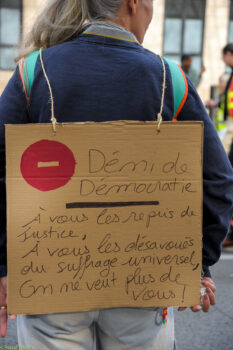 Déni de
Démocratie
À vous les repus de
Justice,
À vous les désavoués
du suffrage universel,
On ne veut plus de
Vous !